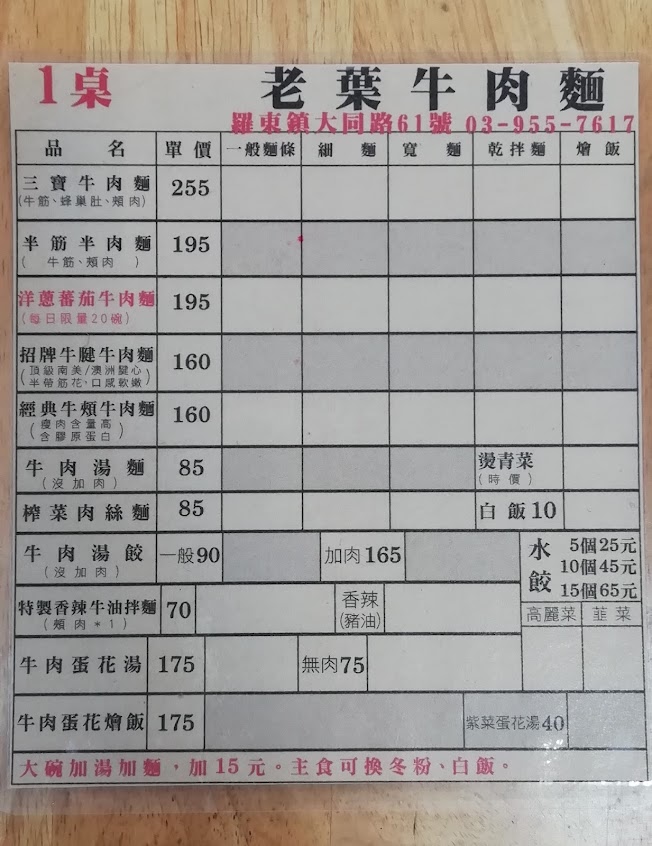 1桌
老葉牛肉麵
羅東鎮大同路61號 03-955-7617
品名 單價 一般麵條 細麵 寬麵 乾拌麵 燴飯
三寶牛肉麵 255
(牛筋、蜂巢肚、頰肉)
半筋半肉麵 195
(牛筋、頰肉)
洋蔥蕃茄牛肉麵 195
(每日限量20碗)
招牌牛腱牛肉麵 160
(頂級南美/澳洲腱心
半帶筋花、口感軟嫩)
經典牛頰牛肉麵 160
(瘦肉含量高
含膠原蛋白)
牛肉湯麵 85 燙青菜
(沒加肉) (時價)
榨菜肉絲麵 85 白飯10
牛肉湯餃 一般90 加肉165
(沒加肉)
水餃 5個25元
10個45元
15個65元
高麗菜 韭菜
特製香辣牛油拌麵 70 香辣
(頰肉*1) (豬油)
牛肉蛋花湯 175 無肉75
牛肉蛋花燴飯 175 紫菜蛋花湯40
大碗加湯加麵，加15元。主食可換冬粉、白飯。